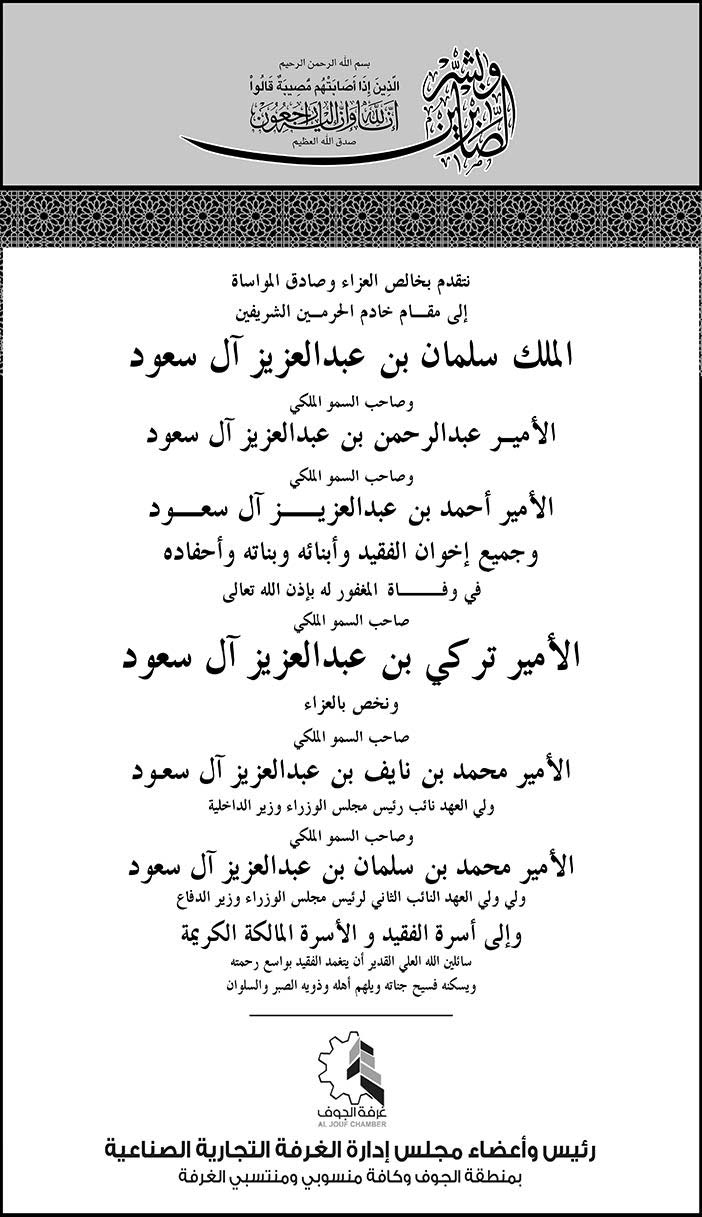 بسم الله الرحمن الرحيم
وبشر الصابرين
الَّذِينَ إِذَا أَصَابَتْهُم مُّصِيبَةٌ قَالُواْ
إِنَّا لِلَّهِ وَإِنَّا إِلَيْهِ رَاجِعُونَ
صدق الله العظيم
نتقدم بخالص العزاء وصادق المواساة
إلى مقام خادم الحرمين الشريفين
الملك سلمان بن عبدالعزيز آل سعود
وصاحب السمو الملكي
الأمير عبدالرحمن بن عبدالعزيز آل سعود
وصاحب السمو الملكي
الأمير أحمد بن عبدالعزيز آل سعود
وجميع إخوان الفقيد وأبنائه وبناته وأحفاده
في وفاة المغفور له بإذن الله تعالى
صاحب السمو الملكي
الأمير تركي بن عبدالعزيز آل سعود
ونخص بالعزاء
صاحب السمو الملكي
الأمير محمد بن نايف بن عبدالعزيز آل سعود
ولي العهد نائب رئيس مجلس الوزراء وزير الداخلية
وصاحب السمو الملكي
الأمير محمد بن سلمان بن عبدالعزيز آل سعود
ولي ولي العهد النائب الثاني لرئيس مجلس الوزراء وزير الدفاع
وإلى أسرة الفقيد و الأسرة المالكة الكريمة
سائلين الله العلي القدير أن يتغمد الفقيد بواسع رحمته
ويسكنه فسيح جناته ويلهم أهله وذويه الصبر والسلوان
غرفة الجوف
AL JOUF CHAMBER
رئيس وأعضاء مجلس إدارة الغرفة التجارية الصناعية
بمنطقة الجوف وكافة منسوبي ومنتسبي الغرفة